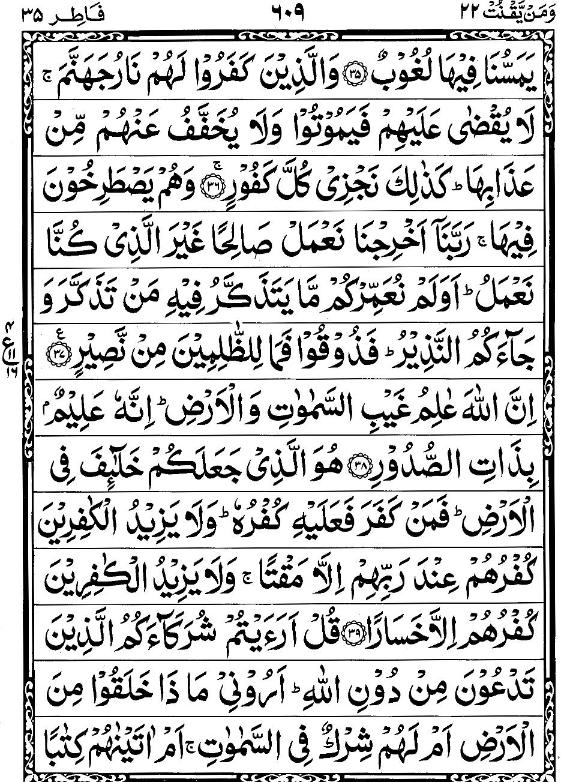 وَمَنْ يَّقْنُتْ ٢٢ ٦٠٩ فَاطِر ٣٥
يَمَسُّنَا فِيْهَا لُغُوْبٌ ﴿٣٥﴾ وَالَّذِيْنَ كَفَرُوْا لَهُمْ نَارُ جَهَنَّمَ ۚ
لَا يُقْضٰى عَلَيْهِمْ فَيَمُوْتُوْا وَلَا يُخَفَّفُ عَنْهُمْ مِّنْ
عَذَابِهَا ؕ كَذٰلِكَ نَجْزِىْ كُلَّ كَفُوْرٍ ۚ ﴿٣٦﴾ وَهُمْ يَصْطَرِخُوْنَ
فِيْهَا ۚ رَبَّنَاۤ اَخْرِجْنَا نَعْمَلْ صَالِحًا غَيْرَ الَّذِىْ كُنَّا
نَعْمَلُ ؕ اَوَلَمْ نُعَمِّرْكُمْ مَّا يَتَذَكَّرُ فِيْهِ مَنْ تَذَكَّرَ وَ
جَآءَكُمُ النَّذِيْرُ ؕ فَذُوْقُوْا فَمَا لِلظّٰلِمِيْنَ مِنْ نَّصِيْرٍ ﴿٣٧﴾ ع
٤ ع ١١ ١٦
اِنَّ اللّٰهَ عٰلِمُ غَيْبِ السَّمٰوٰتِ وَالْاَرْضِ ؕ اِنَّهٗ عَلِيْمٌۢ
بِذَاتِ الصُّدُوْرِ ﴿٣٨﴾ هُوَ الَّذِىْ جَعَلَكُمْ خَلٰٓئِفَ فِى
الْاَرْضِ ؕ فَمَنْ كَفَرَ فَعَلَيْهِ كُفْرُهٗ ؕ وَلَا يَزِيْدُ الْكٰفِرِيْنَ
كُفْرُهُمْ عِنْدَ رَبِّهِمْ اِلَّا مَقْتًا ۚ وَلَا يَزِيْدُ الْكٰفِرِيْنَ
كُفْرُهُمْ اِلَّا خَسَارًا ﴿٣٩﴾ قُلْ اَرَءَيْتُمْ شُرَكَآءَكُمُ الَّذِيْنَ
تَدْعُوْنَ مِنْ دُوْنِ اللّٰهِ ؕ اَرُوْنِىْ مَاذَا خَلَقُوْا مِنَ
الْاَرْضِ اَمْ لَهُمْ شِرْكٌ فِى السَّمٰوٰتِ ۚ اَمْ اٰتَيْنٰهُمْ كِتٰبًا